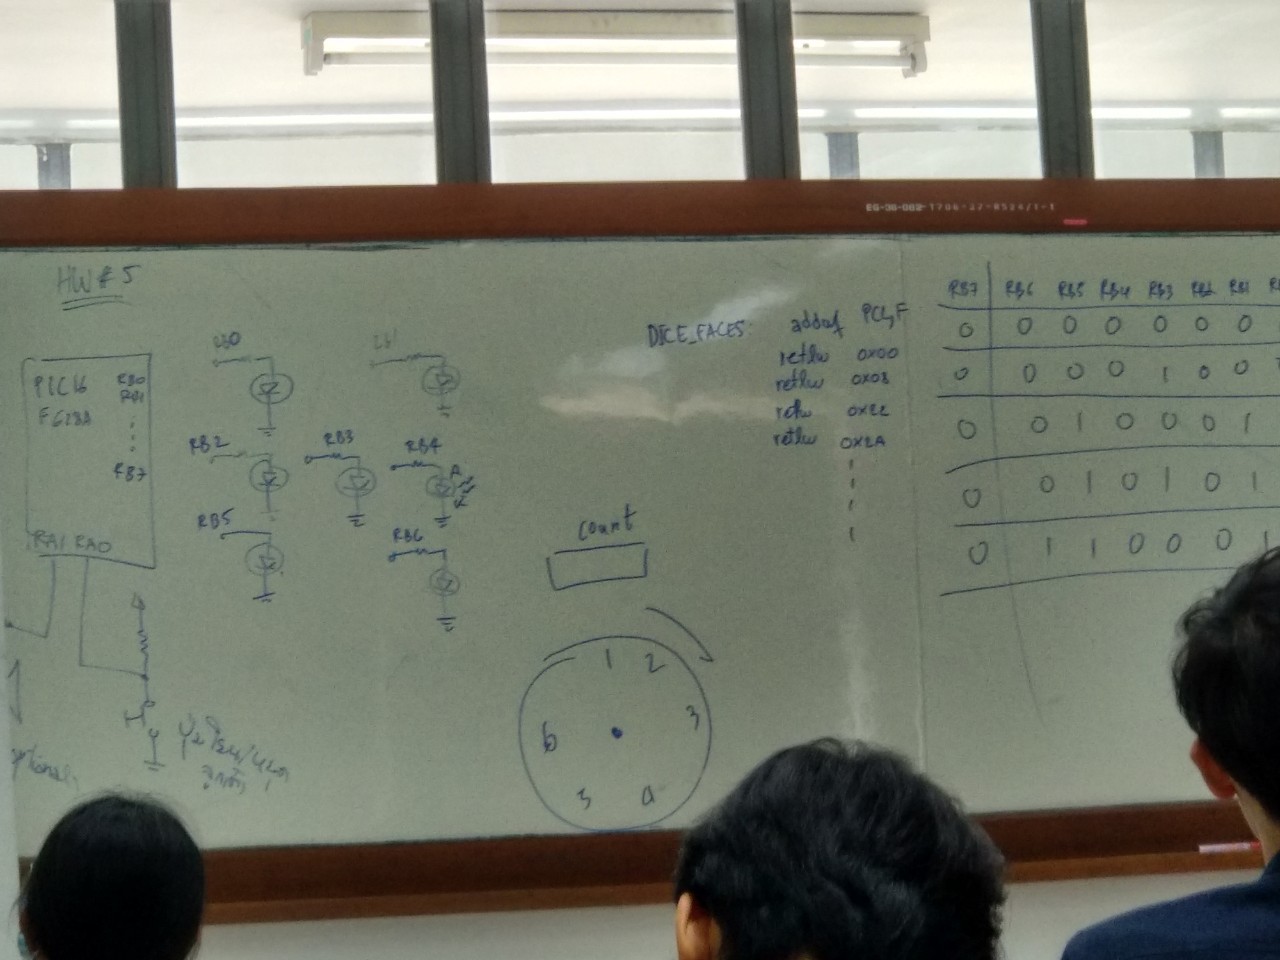 EG-36-082-1706-27-8524/1-1
HW # 5
PIC16
F628A
RB0
RB1
RB7
RA1 RA0
RB2
RB3
RB4
A
K
RB5
RB6
count
1 2
3
6
DICE_FACES: addwf PCL,F
retlw 0x00
retlw 0x08
retlw 0x22
retlw 0x2A
RB7 RB6 RB5 RB4 RB3 RB2 RB1
0 0 0 0 0 0 0
0 0 0 0 1 0 0
0 0 1 0 0 0 1
0 0 1 0 1 0 1
0 1 1 0 0 0 1